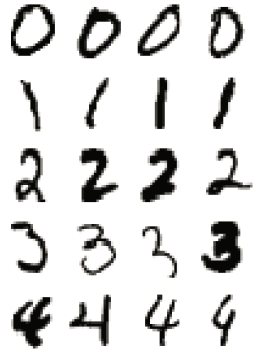 0 0 0 0
1 1 1 1
2 2 2 2
3 3 3 3
4 4 4 4